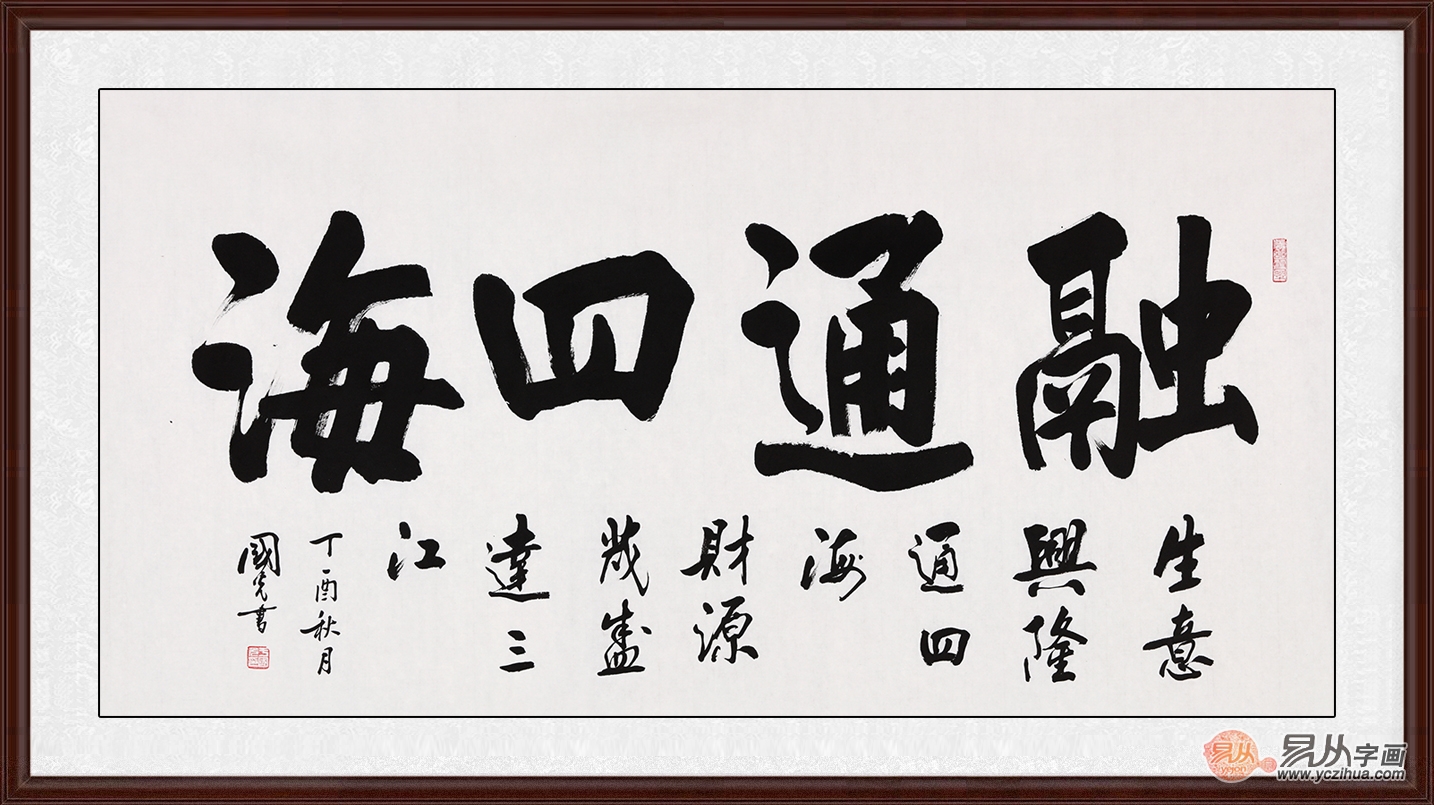 融通四海
生意
興隆
通四
海
財源
茂盛
達三
江
丁酉秋月
國光書
易从
易从字画
www.yczihua.com